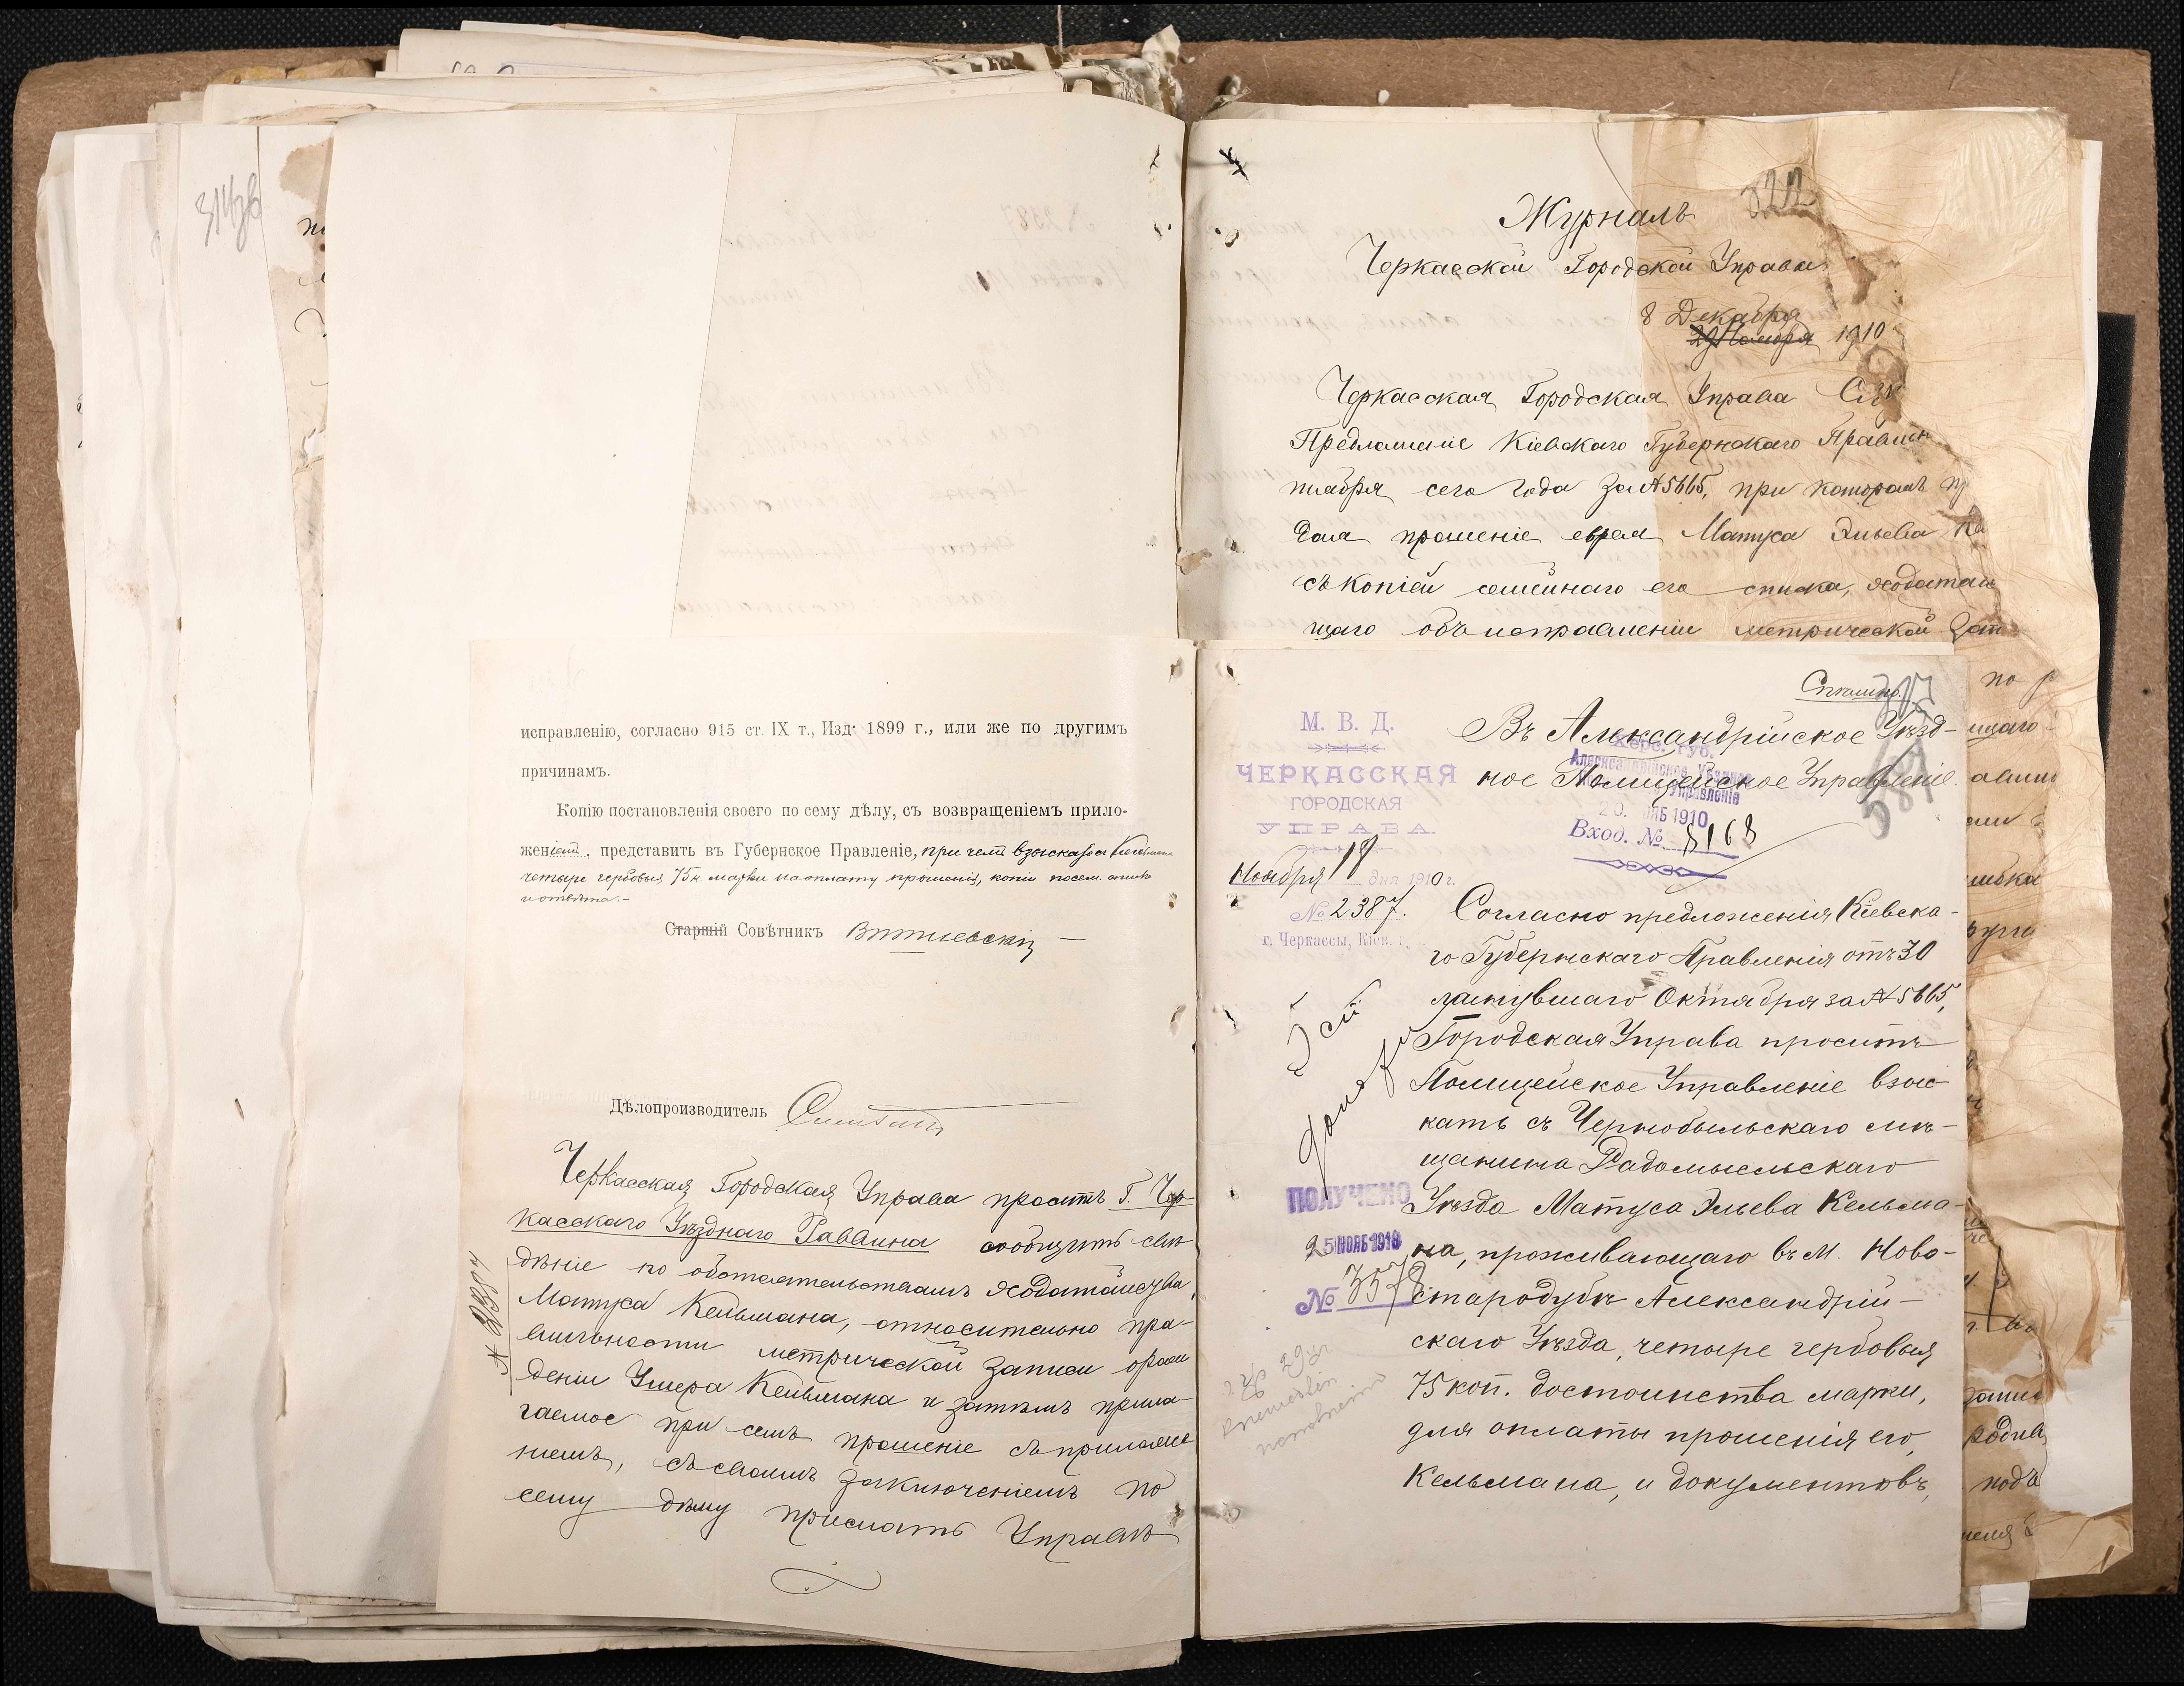 исправленію, согласно 915 ст. IX т., Изд. 1899 г., или же по другимъ
причинамъ.
Копію постановленія своего по сему дѣлу, съ возвращеніемъ прило-
женій, представить въ Губернское Правленіе, при чемъ взыскать съ Кельмана
четыре гербовыя 75 к. марки на оплату прошенія, копіи посем. списка
и отвѣта.-
Старшій Совѣтникъ
Дѣлопроизводитель
Черкасская Городская Управа проситъ Г. Чер-
касскаго Уѣзднаго Раввина сообщить свѣ-
дѣніе по обстоятельствамъ ходатайства
Матуса Кельмана, относительно пра-
вильности метрической записи о рож-
деніи Умера Кельмана и затѣмъ прила-
гаемое при семъ прошеніе съ приложе-
ніемъ, съ своимъ заключеніемъ по
сему дѣлу прислать Управѣ
№ 2387
Журналъ
822
Черкасской Городской Управы
8 Декабря
29 Ноября 1910
Черкасская Городская Управа
Предложеніе Кіевскаго Губернскаго Правлен
тября сего года за №5665, при которомъ
дала прошеніе еврея Матуса Эльева Ке
съ копіей семейнаго его списка, ходатай
щаго объ исправленіи метрической
М. В. Д.
ЧЕРКАССКАЯ
ГОРОДСКАЯ
УПРАВА.
Ноября 18 дня 1910 г.
№ 2387.
г. Черкассы, Кіев. г.
Спѣшно.
Въ Александрійское Уѣзд-
ное Полицейское Управленіе.
Херс. Губ.
Александрійское Уѣздное
Управленіе
20. НОЯБ 1910
Вход. № 8168
Согласно предложенія Кіевска-
го Губернскаго Правленія отъ 30
минувшаго Октября за №5665,
Городская Управа проситъ
Полицейское Управленіе взыс-
кать съ Чернобыльскаго мѣ-
щанина Радомысльскаго
Уѣзда Матуса Эльева Кельма-
на, проживающаго въ м. Ново-
стародубѣ Александрій-
скаго Уѣзда, четыре гербовыя
75 коп. достоинства марки,
для оплаты прошенія его,
Кельмана, и документовъ,
ПОЛУЧЕНО
25 НОЯБ 1910
№ 3578